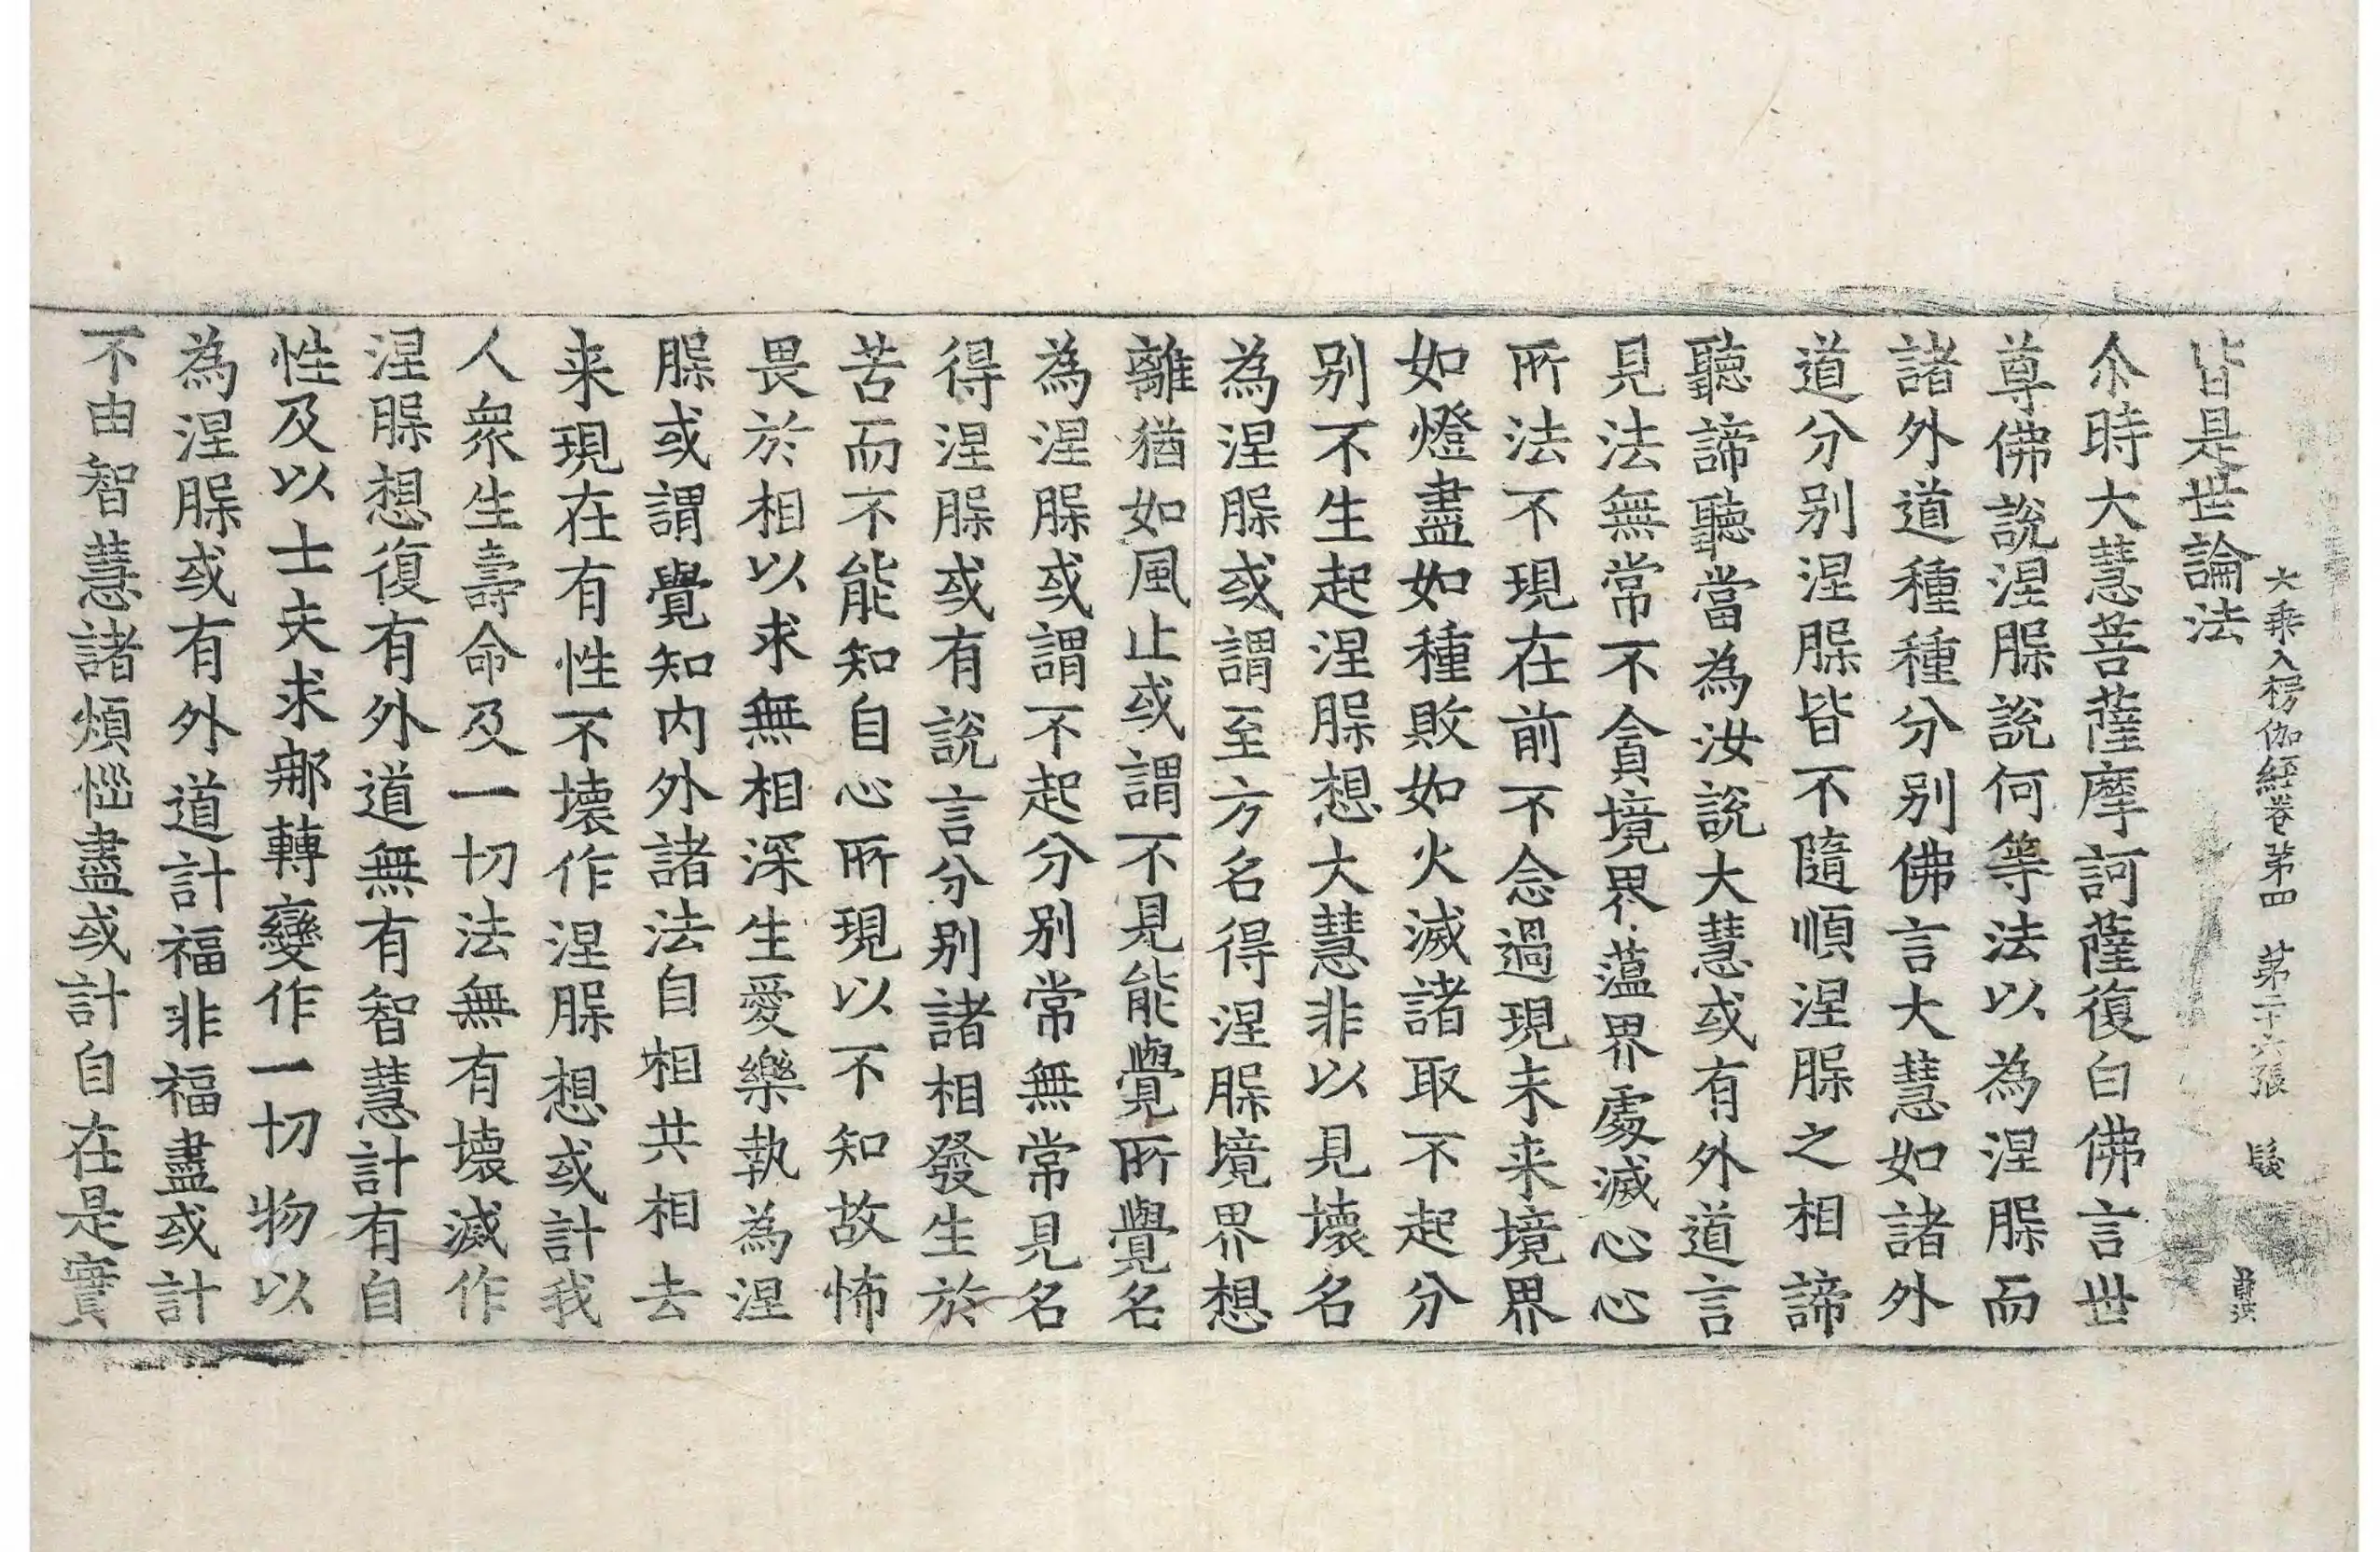 大乘入楞伽經卷第四 第二十六張 髮
皆是世論法
尒時大慧菩薩摩訶薩復白佛言世
尊佛說涅槃說何等法以為涅槃而
諸外道種種分别佛言大慧如諸外
道分别涅槃皆不隨順涅槃之相諦
聽諦聽當為汝說大慧或有外道言
見法無常不貪境界蘊界處滅心心
所法不現在前不念過現未来境界
如燈盡如種敗如火滅諸取不起分
别不生起涅槃想大慧非以見壞名
為涅槃或謂至方名得涅槃境界想
離猶如風止或謂不見能覺所覺名
為涅槃或謂不起分别常無常見名
得涅槃或有說言分别諸相發生於
苦而不能知自心所現以不知故怖
畏於相以求無相深生愛樂執為涅
槃或謂覺知内外諸法自相共相去
来現在有性不壞作涅槃想或計我
人衆生壽命及一切法無有壞滅作
涅槃想復有外道無有智慧計有自
性及以士夫求那轉變作一切物以
為涅槃或有外道計福非福盡或計
不由智慧諸煩惱盡或計自在是實